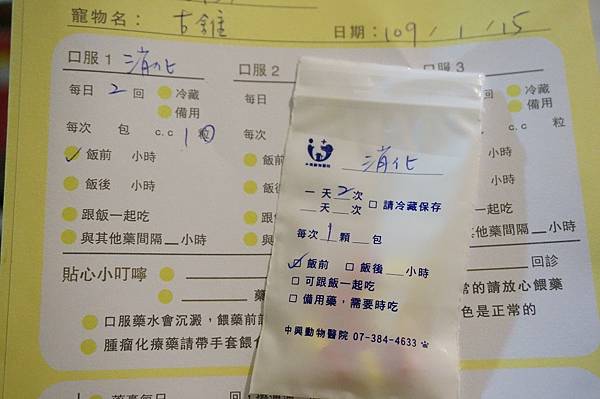 寵物名： 古錐 日期：109 / 1 / 15
口服 1 消化 口服 2 口服 3
每日 2 回 冷藏 每日 冷藏
備用 備用
每次 包 c.c 1 粒 每次 c.c 粒
飯前 小時 飯前 小時
飯後 小時 飯後 小時
跟飯一起吃 跟飯 一起吃
與其他藥間隔__小時 與其 他藥間隔__小時
貼心小叮嚀 回診
藥 常的請放心餵藥
口服藥水會沉澱，餵藥前 色是正常的
腫瘤化療藥請帶手套餵
藥膏每日 回
消化
一天 2 次 □ 請冷藏保存
__天__次
每次 1 顆__包
☑ 飯前 □ 飯後__小時
□ 可跟飯一起吃
□ 備用藥，需要時吃
中興動物醫院 07-384-4633